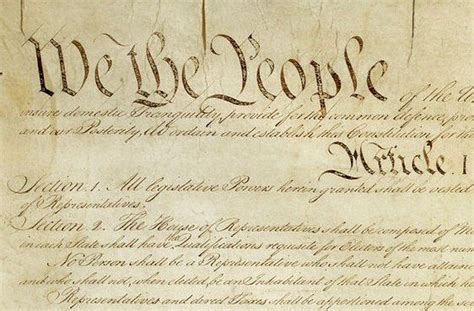 We the People of the U
insure domestic Tranquility, provide for the common defence, pro
and our Posterity, do ordain and establish this Constitution for th
Article. I
Section. 1. All legislative Powers herein granted shall be vested
of Representatives.
Section. 2. The House of Representatives shall be composed of M
in each State shall have the Qualifications requisite for Electors of the most num
No Person shall be a Representative who shall not have attain
and who shall not, when elected, be an Inhabitant of that State in which h
Representatives and direct Taxes shall be apportioned among the se